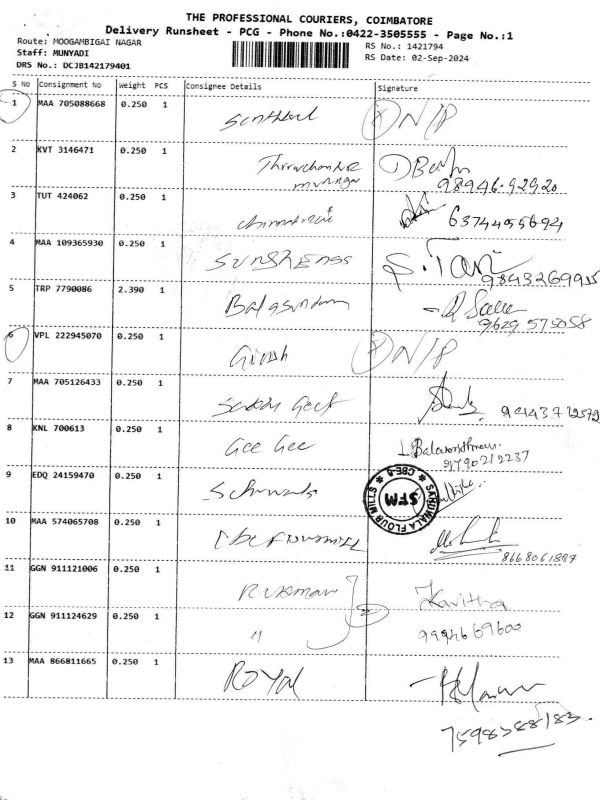 THE PROFESSIONAL COURIERS, COIMBATORE
Delivery Runsheet - PCG - Phone No.:0422-3505555 - Page No.:1
Route: MOOGAMBIGAI NAGAR
RS No.: 1421794
Staff: MUNYADI
RS Date: 02-Sep-2024
DRS No.: DCJB142179401
S No Consignment No Weight PCS Consignee Details Signature
1 MAA 705088668 0.250 1 N/P
2 KVT 3146471 0.250 1
98946.92920
3 TUT 424062 0.250 1 6374455694
4 MAA 109365930 0.250 1 S.Tari
9843269915
5 TRP 7790086 2.390 1 Balasundam
9629 575058
6 VPL 222945070 0.250 1 Girish N/P
7 MAA 705126433 0.250 1
8 KNL 700613 0.250 1 Gee Gee
9790212237
9 EDQ 24159470 0.250 1
SARDWALA FLOUR MILLS CBE-5
SFM
10 MAA 574065708 0.250 1
8668061887
11 GGN 911121006 0.250 1 Kavitha
12 GGN 911124629 0.250 1 " 2
9994669600
13 MAA 866811665 0.250 1 ROYAL
7598388183